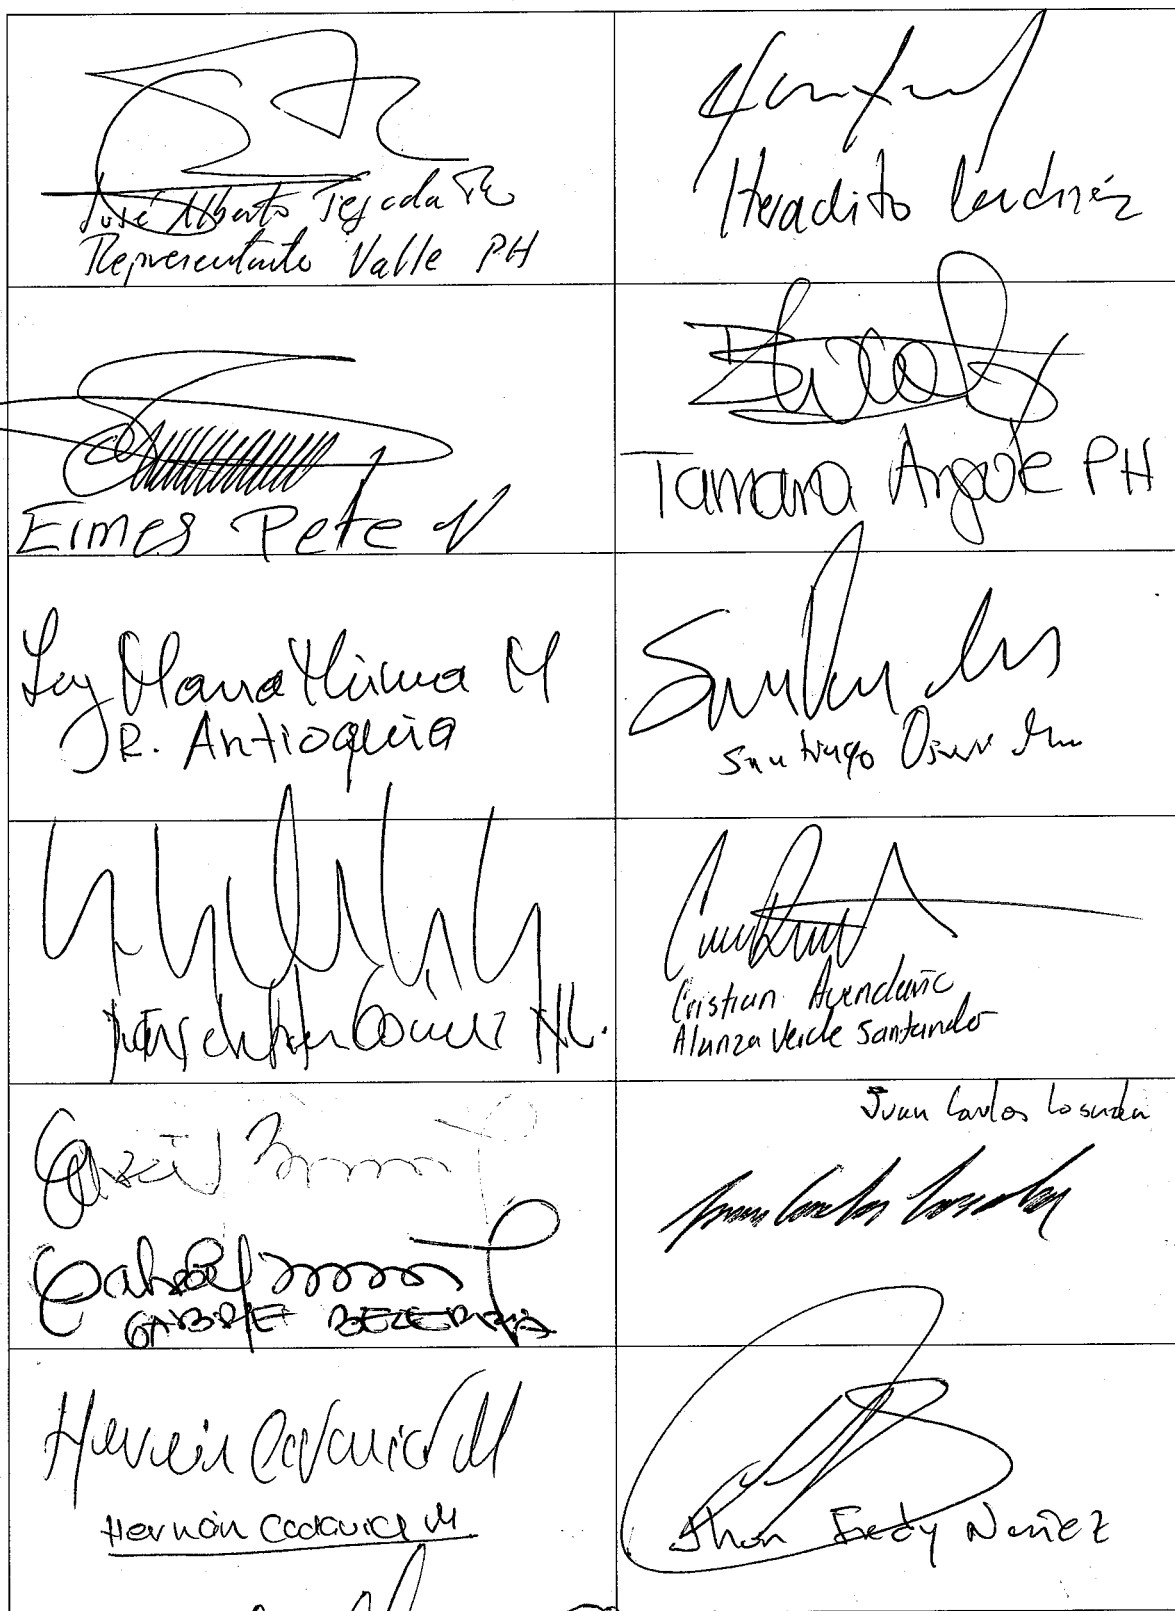 José Alberto Tejada
Representante Valle PH
Heraclito Landinéz
Eimes Pete V
Tamara Argote PH
Luz Maria Múnera M
R. Antioquia
Santiago Osorio
Gómez
Cristian Avendaño
Alianza Verde Santander
Juan Carlos Losada
Juan Carlos Losada
Gabriel
GABRIEL BECERRA
Hernán Cadavid M
Hernán Cadavid M
Jhon Fredy Nuñez